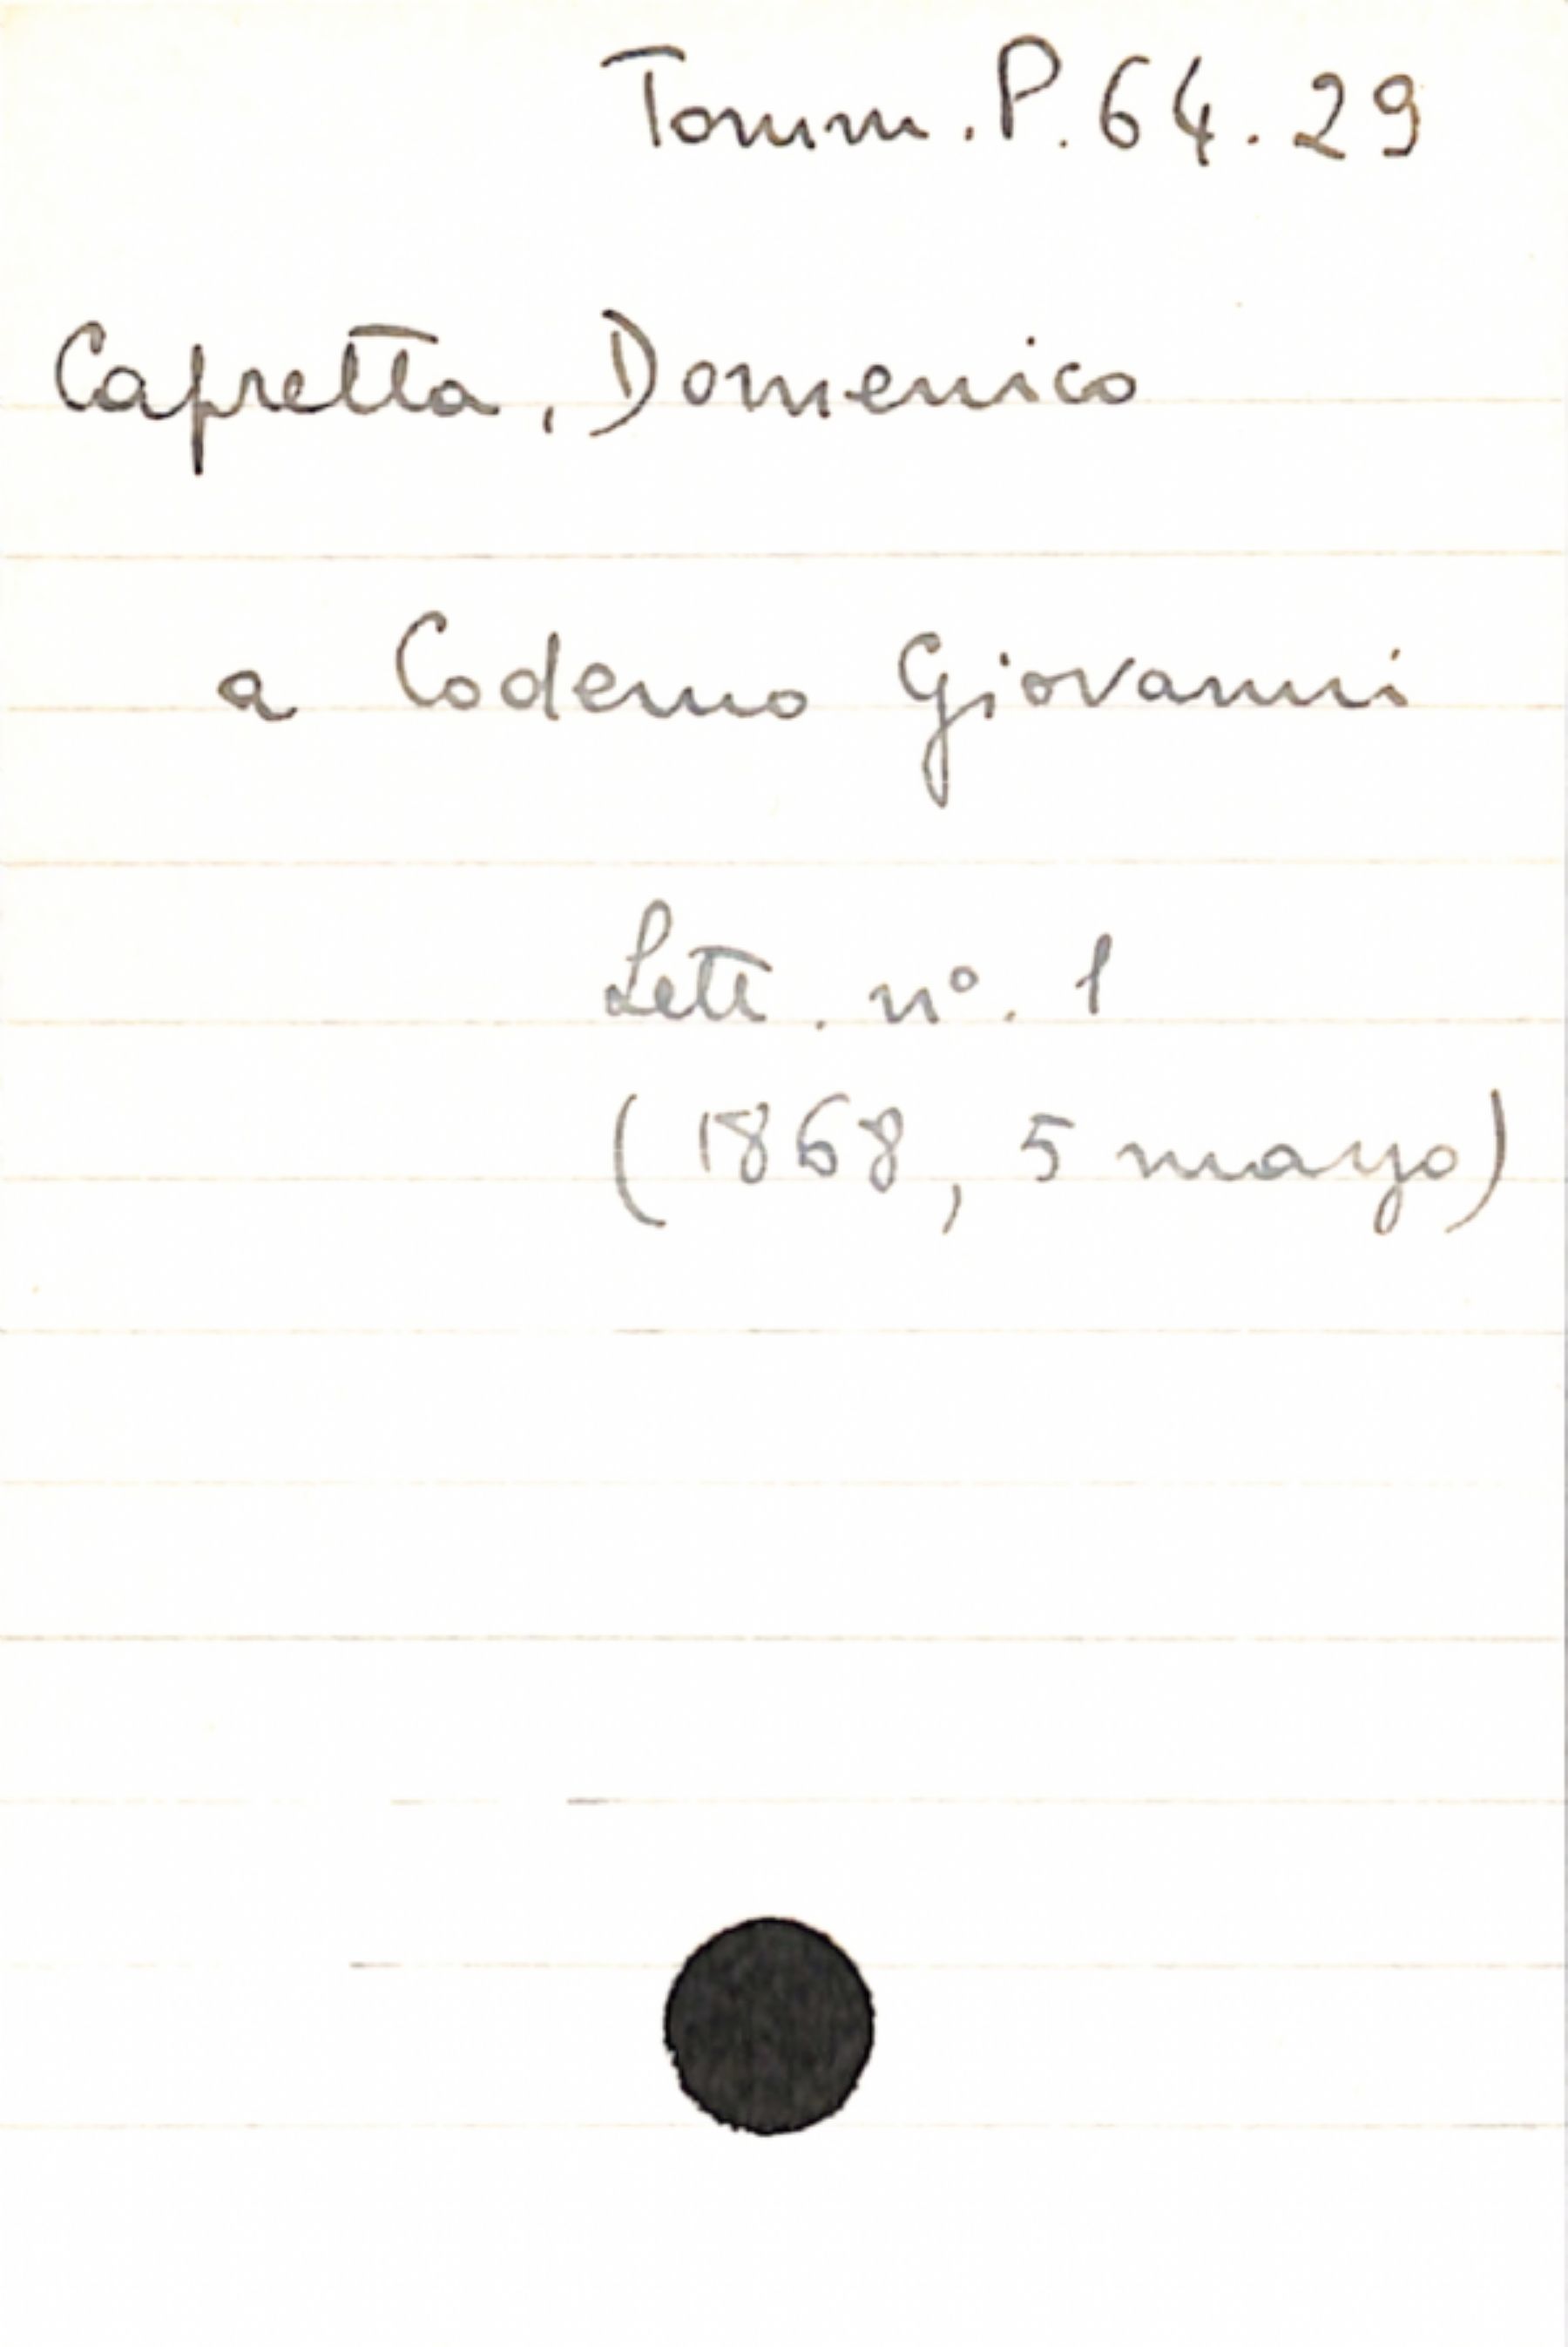 Tomm. P. 64. 29
Capretta, Domenico
a Codemo Giovanni
Lett. n°. 1
(1868, 5 marzo)